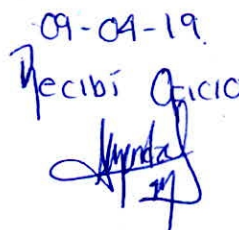 09-04-19.
Recibí Oficio